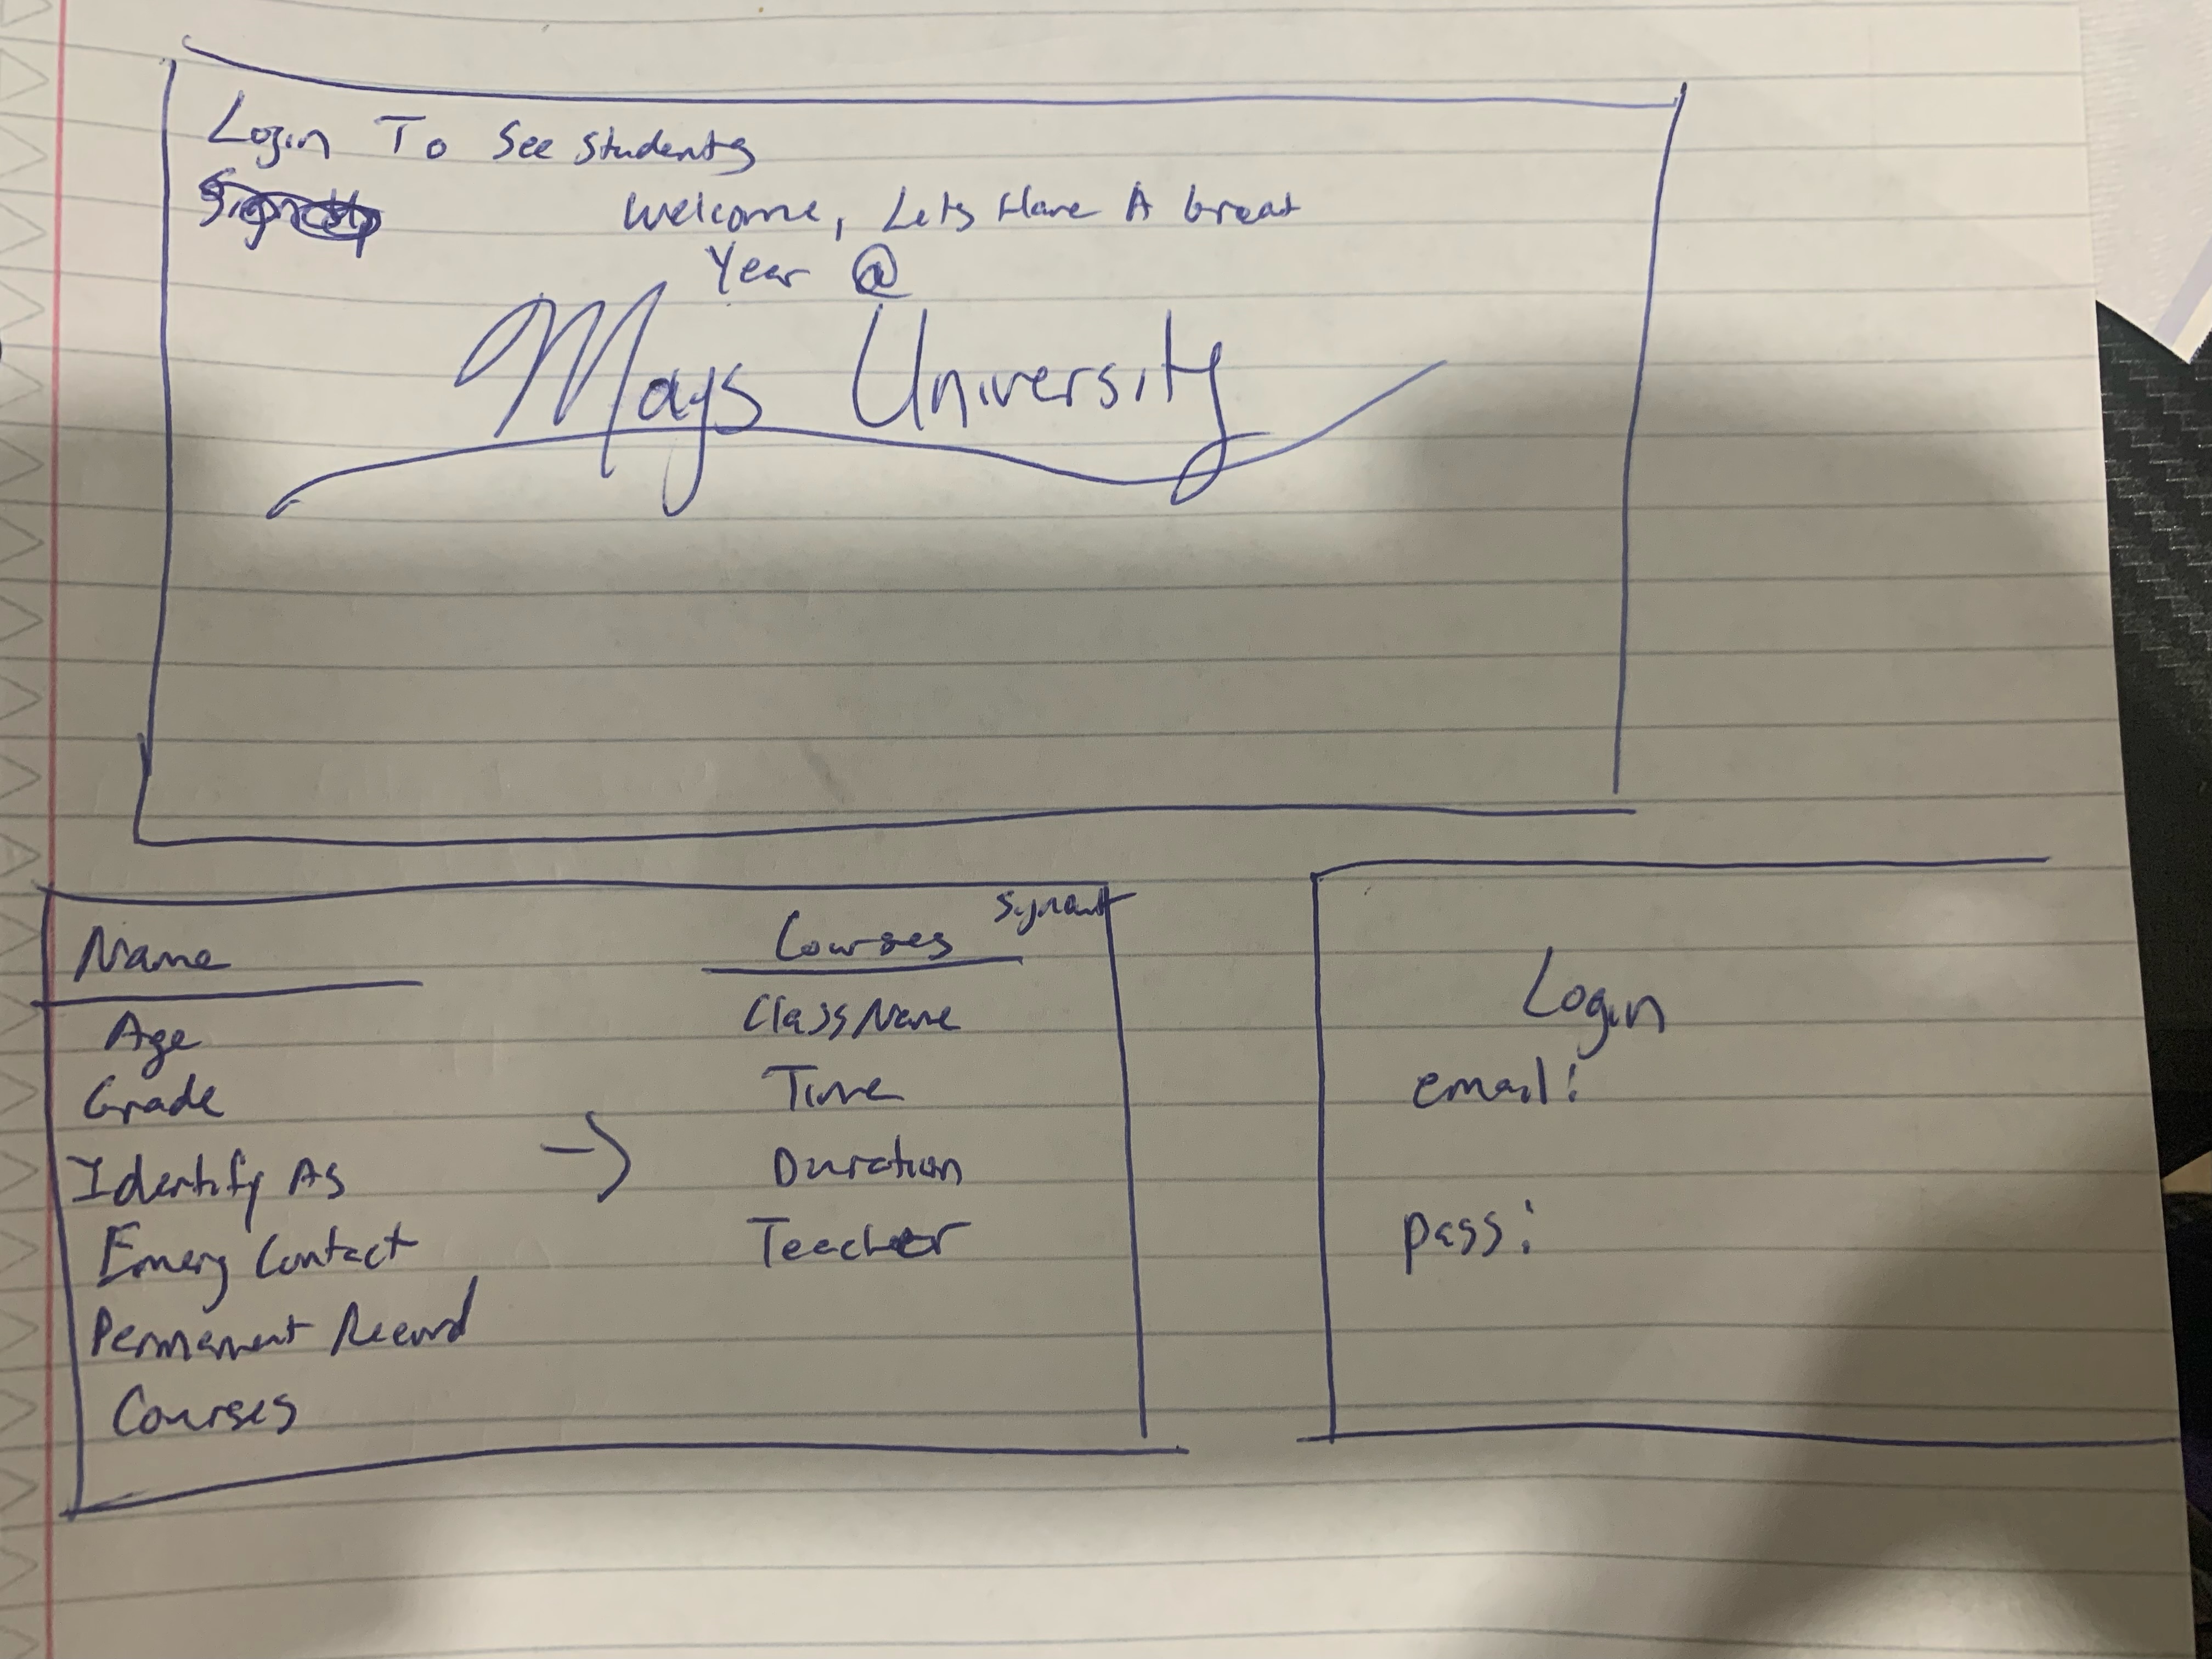 Login To See Students
Welcome, Lets Have A Great
Year @
Mays University
Name
Age
Grade
Identify As
Emerg Contact
Permanent Record
Courses
Courses
ClassName
Time
Duration
Teacher
Login
email:
pass: